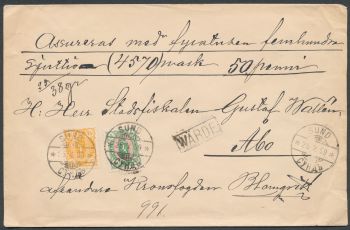 Assureras med fyratusen femhundra
sjuttio (4570) mark 50 penni
38 gr
H: Herr Stadsfiskalen Gustaf Wallén
Åbo
SUND
SUND
WÄRDE
SUND
afsändare Kronofogden Blomqvist
991.